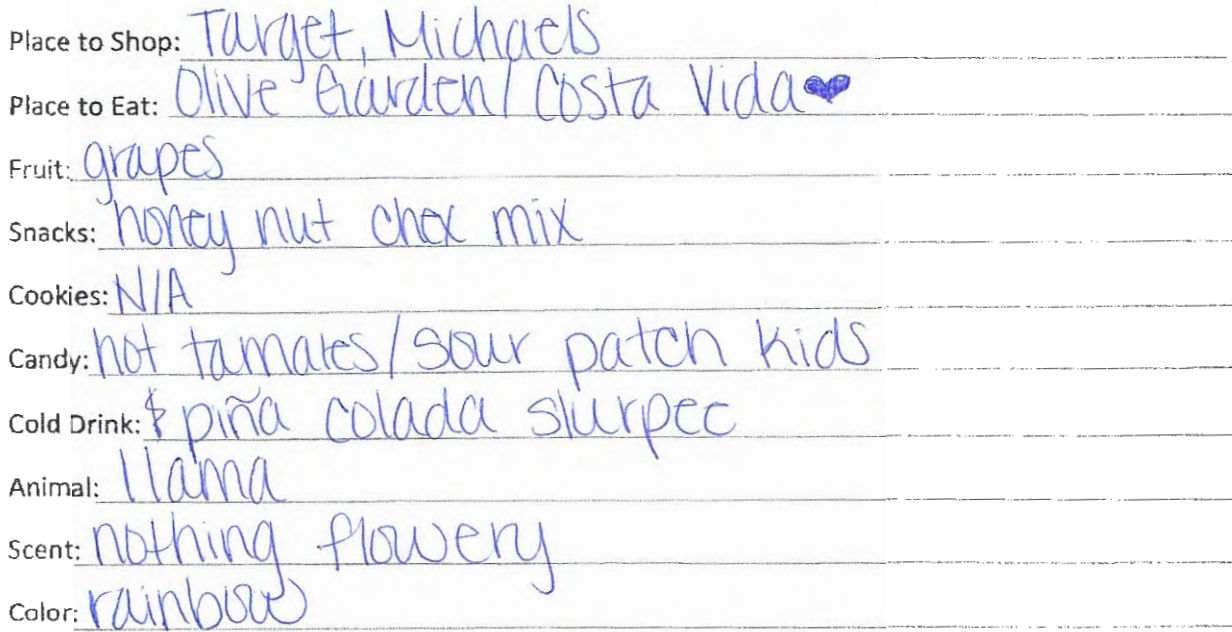 Place to Shop: Target, Michaels
Place to Eat: Olive Garden/Costa Vida
Fruit: grapes
Snacks: honey nut chex mix
Cookies: N/A
Candy: hot tamales/sour patch kids
Cold Drink: & piña colada slurpee
Animal: llama
Scent: nothing flowery
Color: rainbow